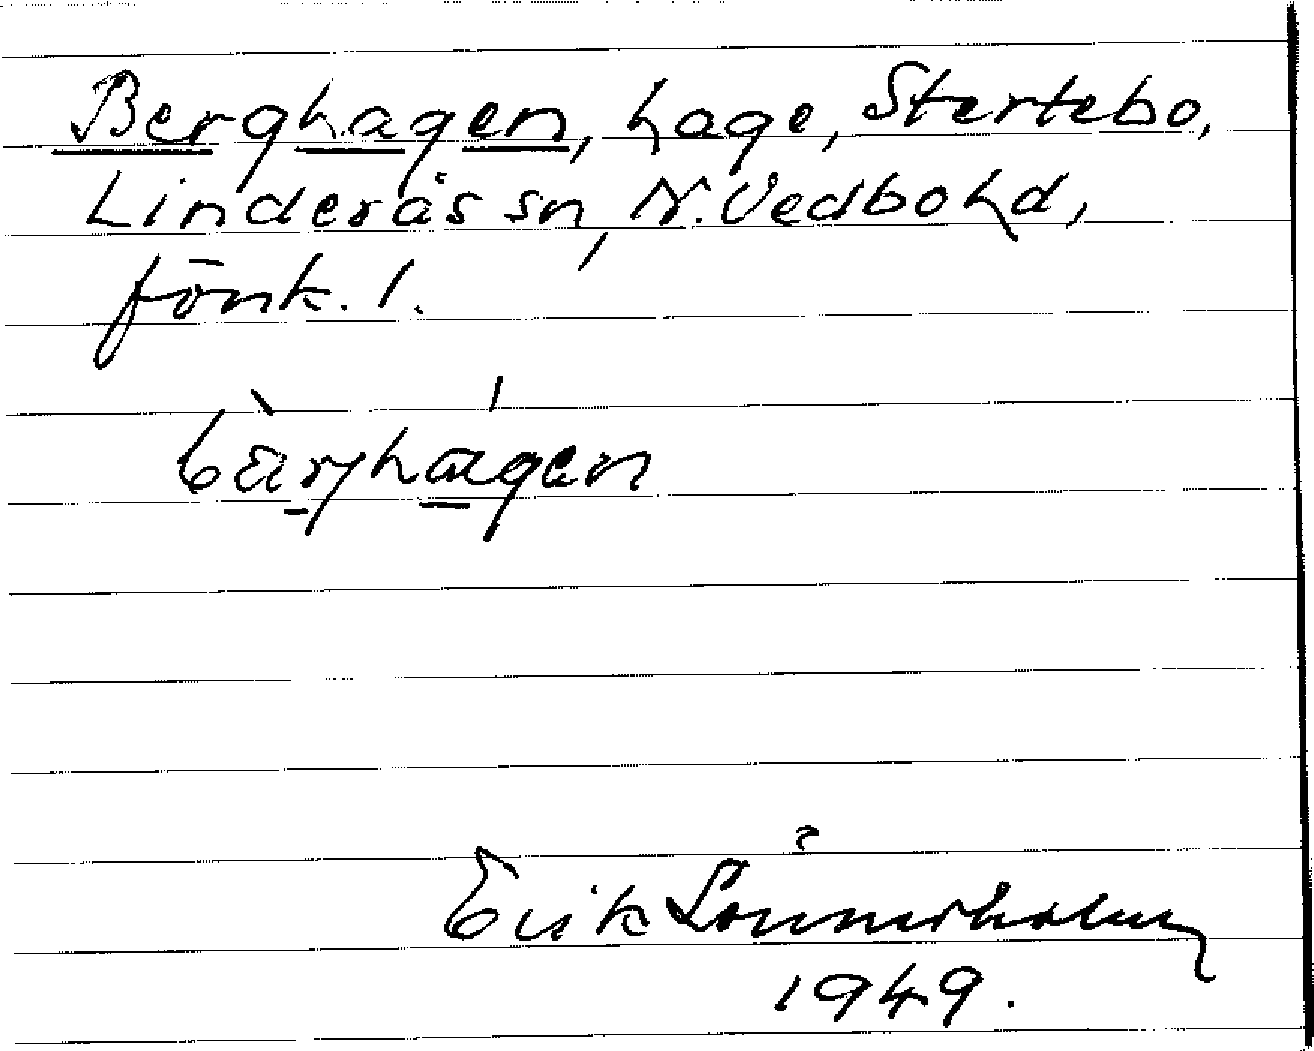 Berghagen, hage, Stertebo,
Linderås sn, N. Vedbo hd,
Jönk. l.
bàrjhágen
Erik Lönnerholm
1949.